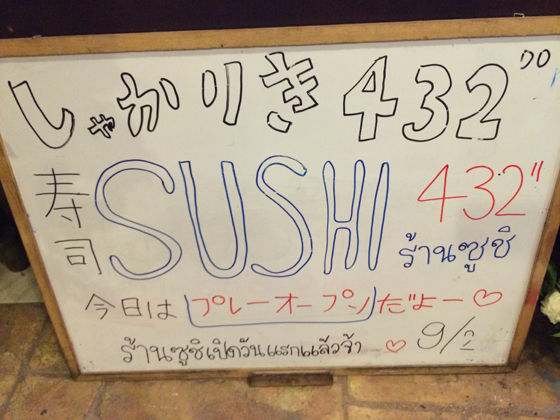 しゃかりき432"
寿司 SUSHI 432"
ร้านซูชิ
今日はプレーオープンだよー♡
ร้านซูชิเปิดวันแรกแล้วจ้า ♡ 9/2